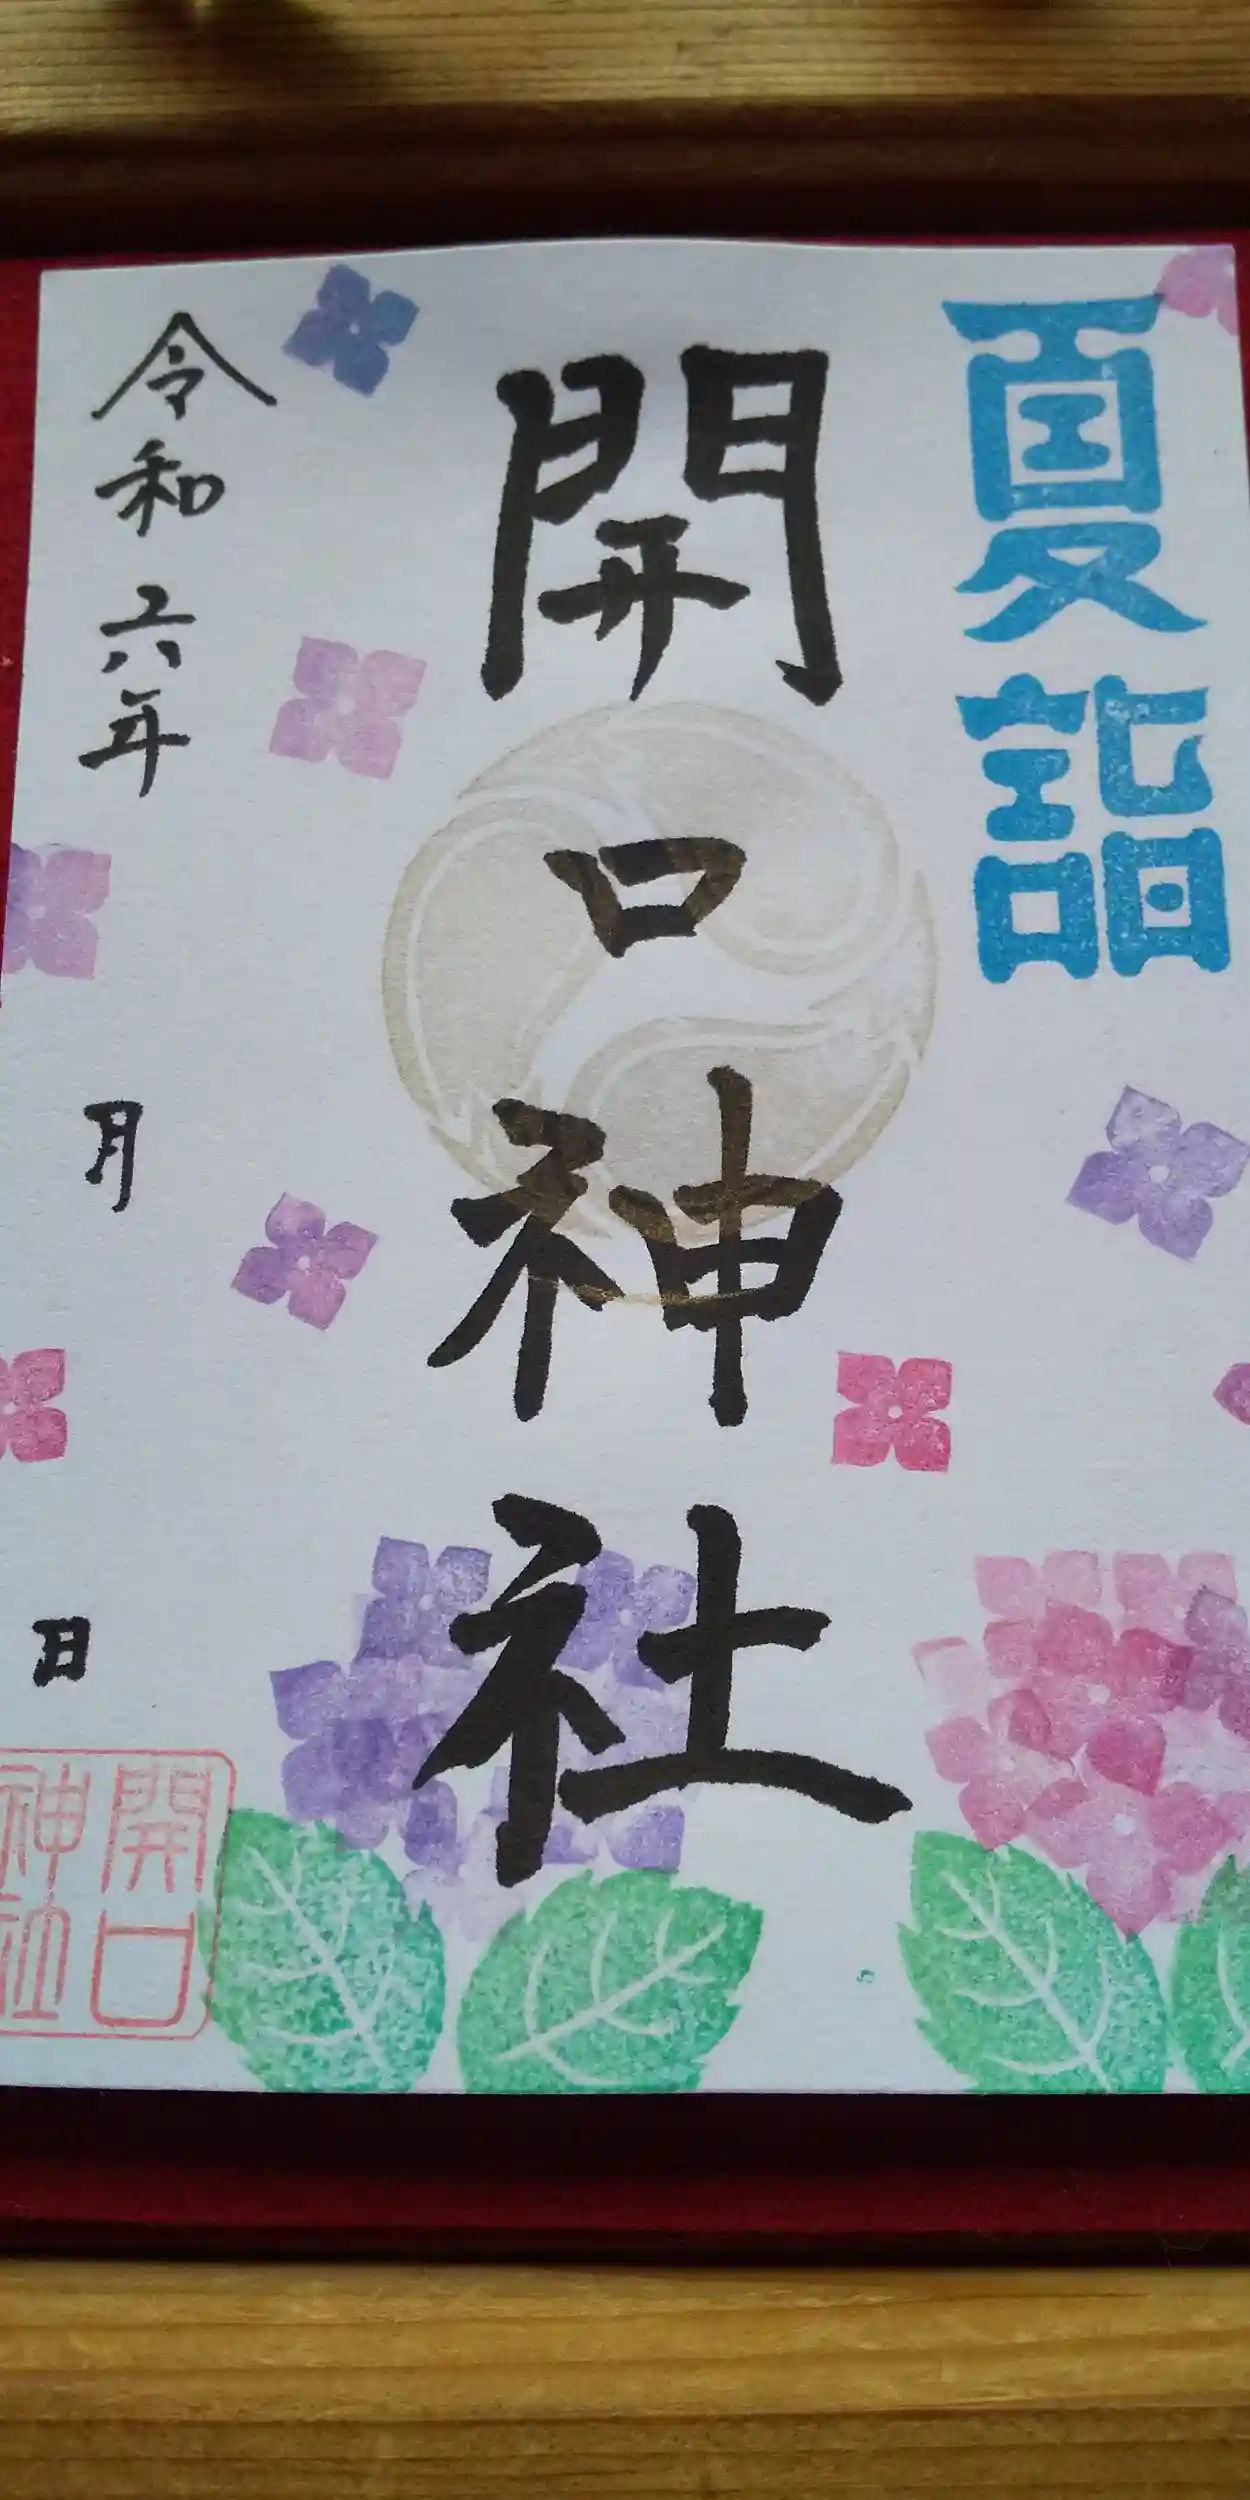 夏詣
開口神社
令和六年 月 日
開口
神社